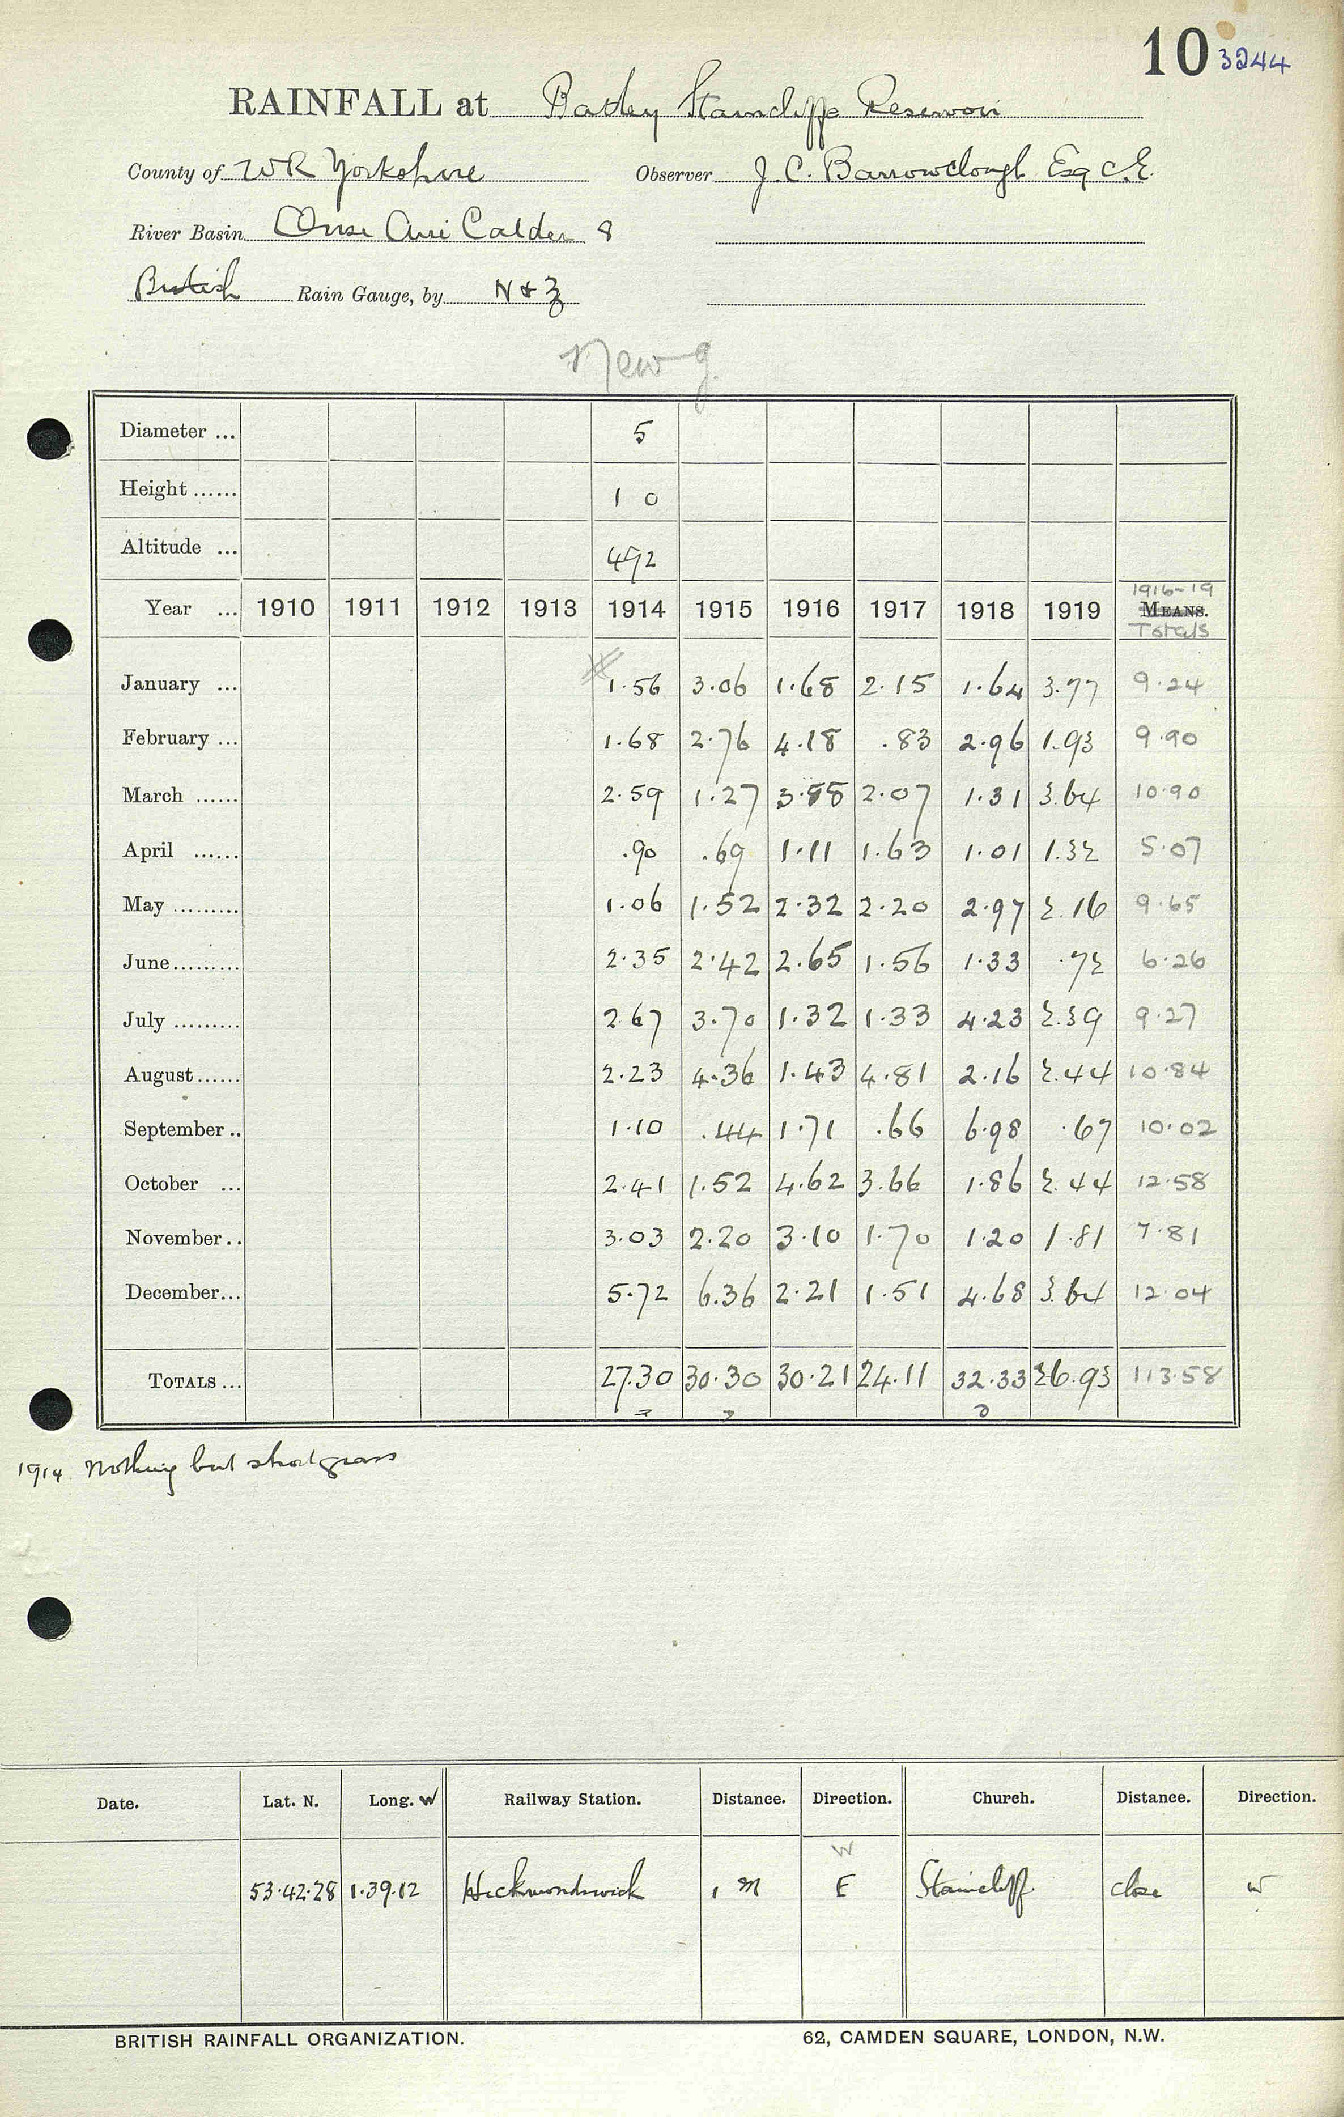 10 3244
RAINFALL at Batley Staincliffe Reservoir
County of WR Yorkshire Observer J. C. Barrowclough Esq C.E.
River Basin Ouse Aire Calder 8
British Rain Gauge, by N & Z
New g.
Diameter ... 5
Height ...... 1 0
Altitude ... 492
Year ... 1910 1911 1912 1913 1914 1915 1916 1917 1918 1919 1916-19 MEANS. Totals
January ... 1.56 3.06 1.68 2.15 1.64 3.77 9.24
February ... 1.68 2.76 4.18 .83 2.96 1.93 9.90
March ...... 2.59 1.27 3.88 2.07 1.31 3.64 10.90
April ...... .90 .69 1.11 1.63 1.01 1.32 5.07
May ......... 1.06 1.52 2.32 2.20 2.97 2.16 9.65
June ......... 2.35 2.42 2.65 1.56 1.33 .72 6.26
July ......... 2.67 3.70 1.32 1.33 4.23 2.39 9.27
August ...... 2.23 4.36 1.43 4.81 2.16 2.44 10.84
September .. 1.10 .44 1.71 .66 6.98 .67 10.02
October ... 2.41 1.52 4.62 3.66 1.86 2.44 12.58
November .. 3.03 2.20 3.10 1.70 1.20 1.81 7.81
December ... 5.72 6.36 2.21 1.51 4.68 3.64 12.04
TOTALS ... 27.30 30.30 30.21 24.11 32.33 26.93 113.58
1914 Nothing but short grass
Date. Lat. N. Long. W Railway Station. Distance. Direction. Church. Distance. Direction.
W
53.42.28 1.39.12 Heckmondwick 1 M E Staincliff. close W
BRITISH RAINFALL ORGANIZATION. 62, CAMDEN SQUARE, LONDON, N.W.